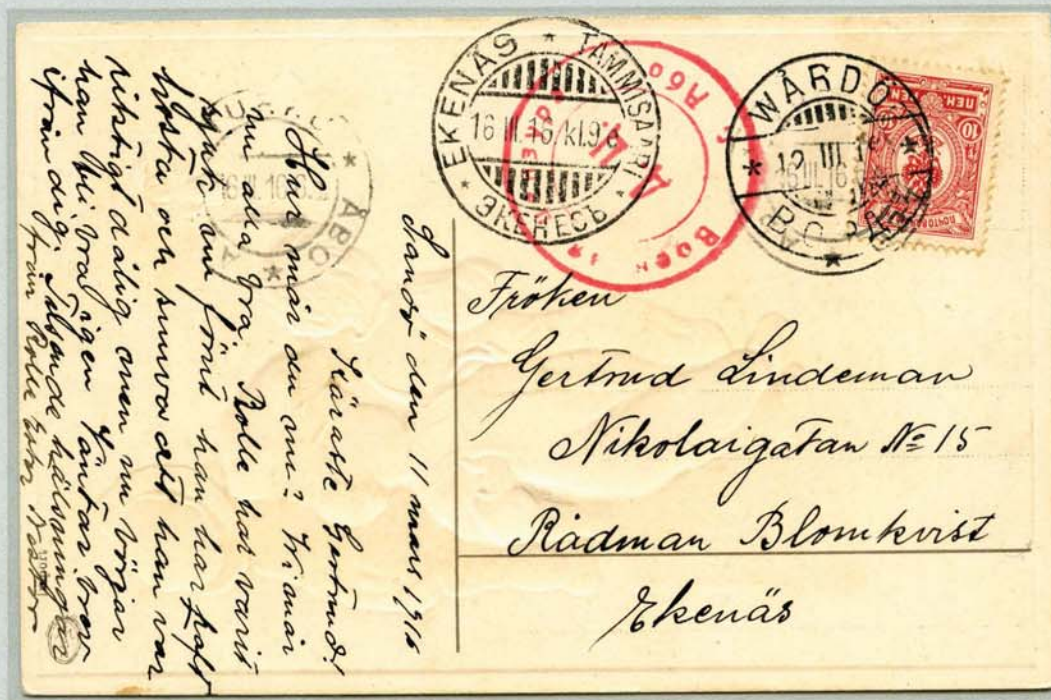 EKENÄS * TAMMISAARI * ЭКЕНЕСЪ *
16 III.16.kl.9 e
Або
WÅRDÖ
12 III 16
ÅBO
16 III.16.
10 ПЕН.
Fröken
Gertrud Lindeman
Nikolaigatan № 15
Rådman Blomkvist
Ekenäs
den 11 mars 1916
Käraste Gertrud!
Hur mår du nu? Vi mår
nu alla bra. Rolle har varit
sjuk nu förut han har haft
hosta och snuva att han var
riktigt dålig men nu börjar
han bli bra igen. Väntar brev
ifrån dig. hälsningar
från Rolle